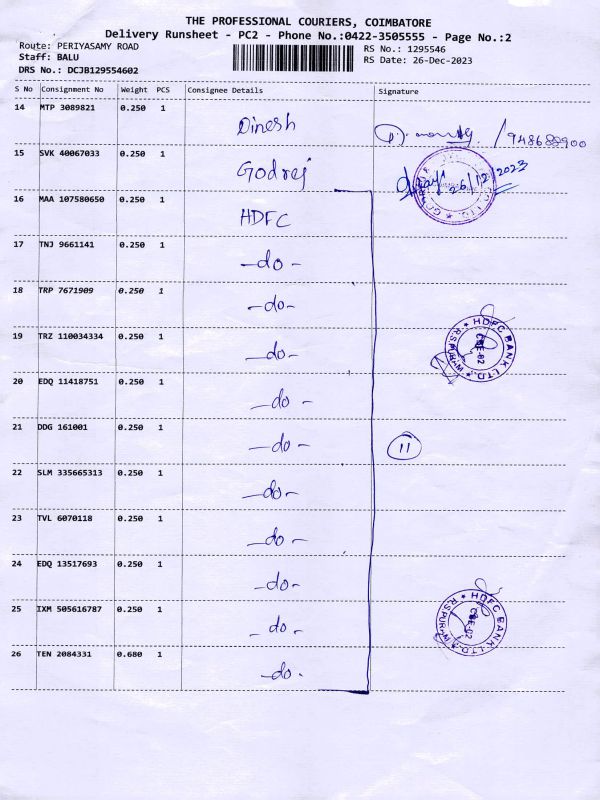 THE PROFESSIONAL COURIERS, COIMBATORE
Delivery Runsheet - PC2 - Phone No.:0422-3505555 - Page No.:2
Route: PERIYASAMY ROAD
RS No.: 1295546
Staff: BALU
RS Date: 26-Dec-2023
DRS No.: DCJB129554602
S No Consignment No Weight PCS Consignee Details Signature
14 MTP 3089821 0.250 1 Dinesh / 948688900
15 SVK 40067033 0.250 1 Godrej 26/12/2023
16 MAA 107580650 0.250 1 HDFC
17 TNJ 9661141 0.250 1 -do-
18 TRP 7671909 0.250 1 -do-
19 TRZ 110034334 0.250 1 -do- HDFC BANK LTD. * R.S.PURAM * CBE-02
20 EDQ 11418751 0.250 1 -do-
21 DDG 161001 0.250 1 -do- 11
22 SLM 335665313 0.250 1 -do-
23 TVL 6070118 0.250 1 -do-
24 EDQ 13517693 0.250 1 -do-
25 IXM 505616787 0.250 1 -do- HDFC BANK LTD. * R.S.PURAM * CBE-02
26 TEN 2084331 0.680 1 -do-